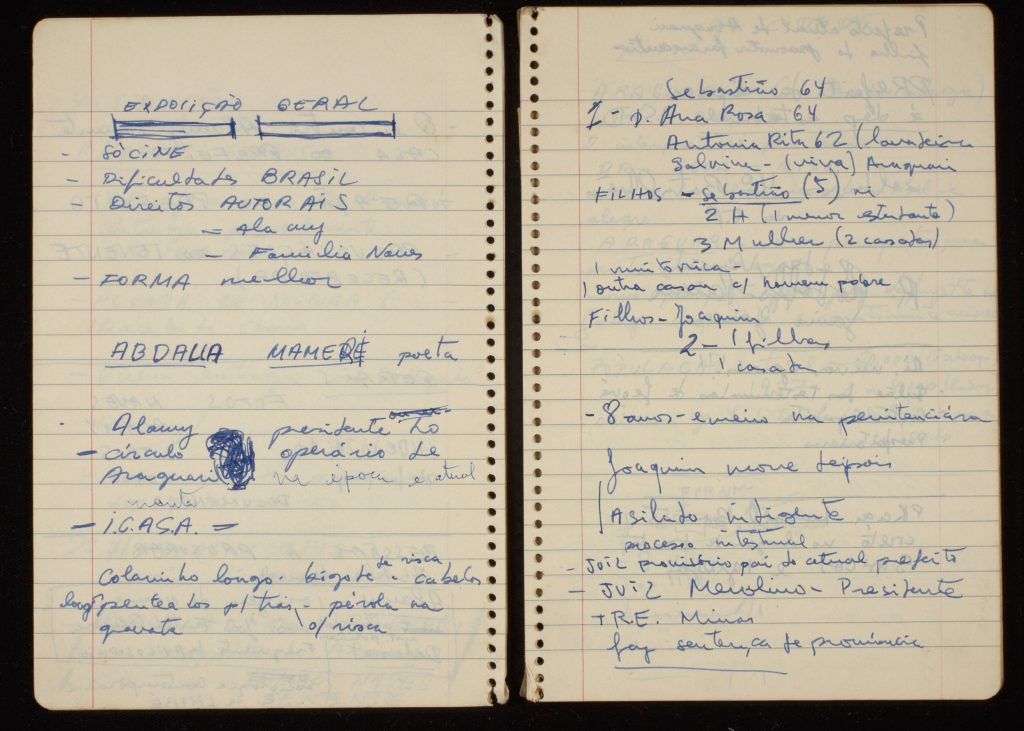 EXPOSIÇÃO GERAL
- SÒCINE
- Dificuldades BRASIL
- Direitos AUTORAIS
= Alamy
- Familia Naves
- FORMA melhor
ABDALLA MAMERÉ poeta
- Alamy presidente do
- círculo operário de
Araguari na época e atual
- I.C.A.S.A. =
de risca
Colarinho longo - bigode - cabelos
penteados p/ tras - pérola na
gravata s/ risca
Sebastião 64
1 - D. Ana Rosa 64
Antonia Rita 62 (lavadeira
Salvina - (viva) Araguari
FILHOS - Sebastião (5)
2 H (1 menor estudante)
3 Mulher (2 casadas)
1 muito rica -
1 outra casou c/ homem pobre
Filhos - Joaquim
2 - 1 filhas
1 casada
- 8 anos - e meio na penitenciária
Joaquim morre depois
Asilado indigente
processo intestinal
- JUIZ provisório pai do atual prefeito
- JUIZ Merolino - Presidente
T.R.E. Minas
faz sentença de pronúncia